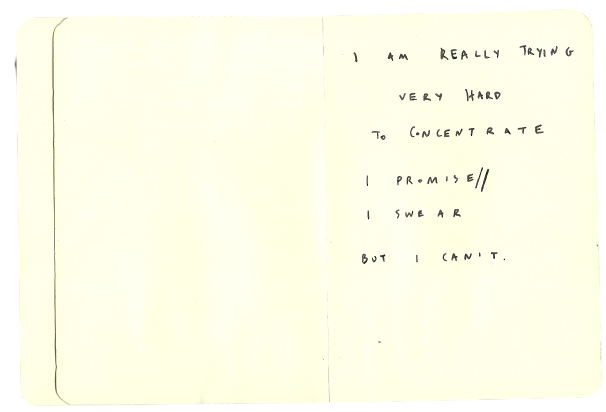 I AM REALLY TRYING
VERY HARD
To CONCENTRATE
I PROMISE//
I SWEAR
BUT I CAN'T.